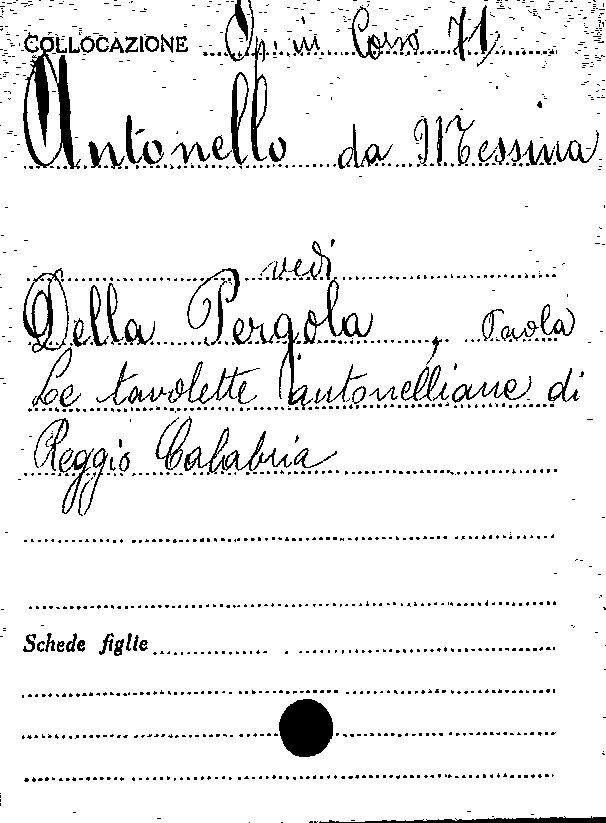 COLLOCAZIONE Op. in Corso 71
Antonello da Messina
vedi
Della Pergola, Paola
Le tavolette antonelliane di
Reggio Calabria
Schede figlie